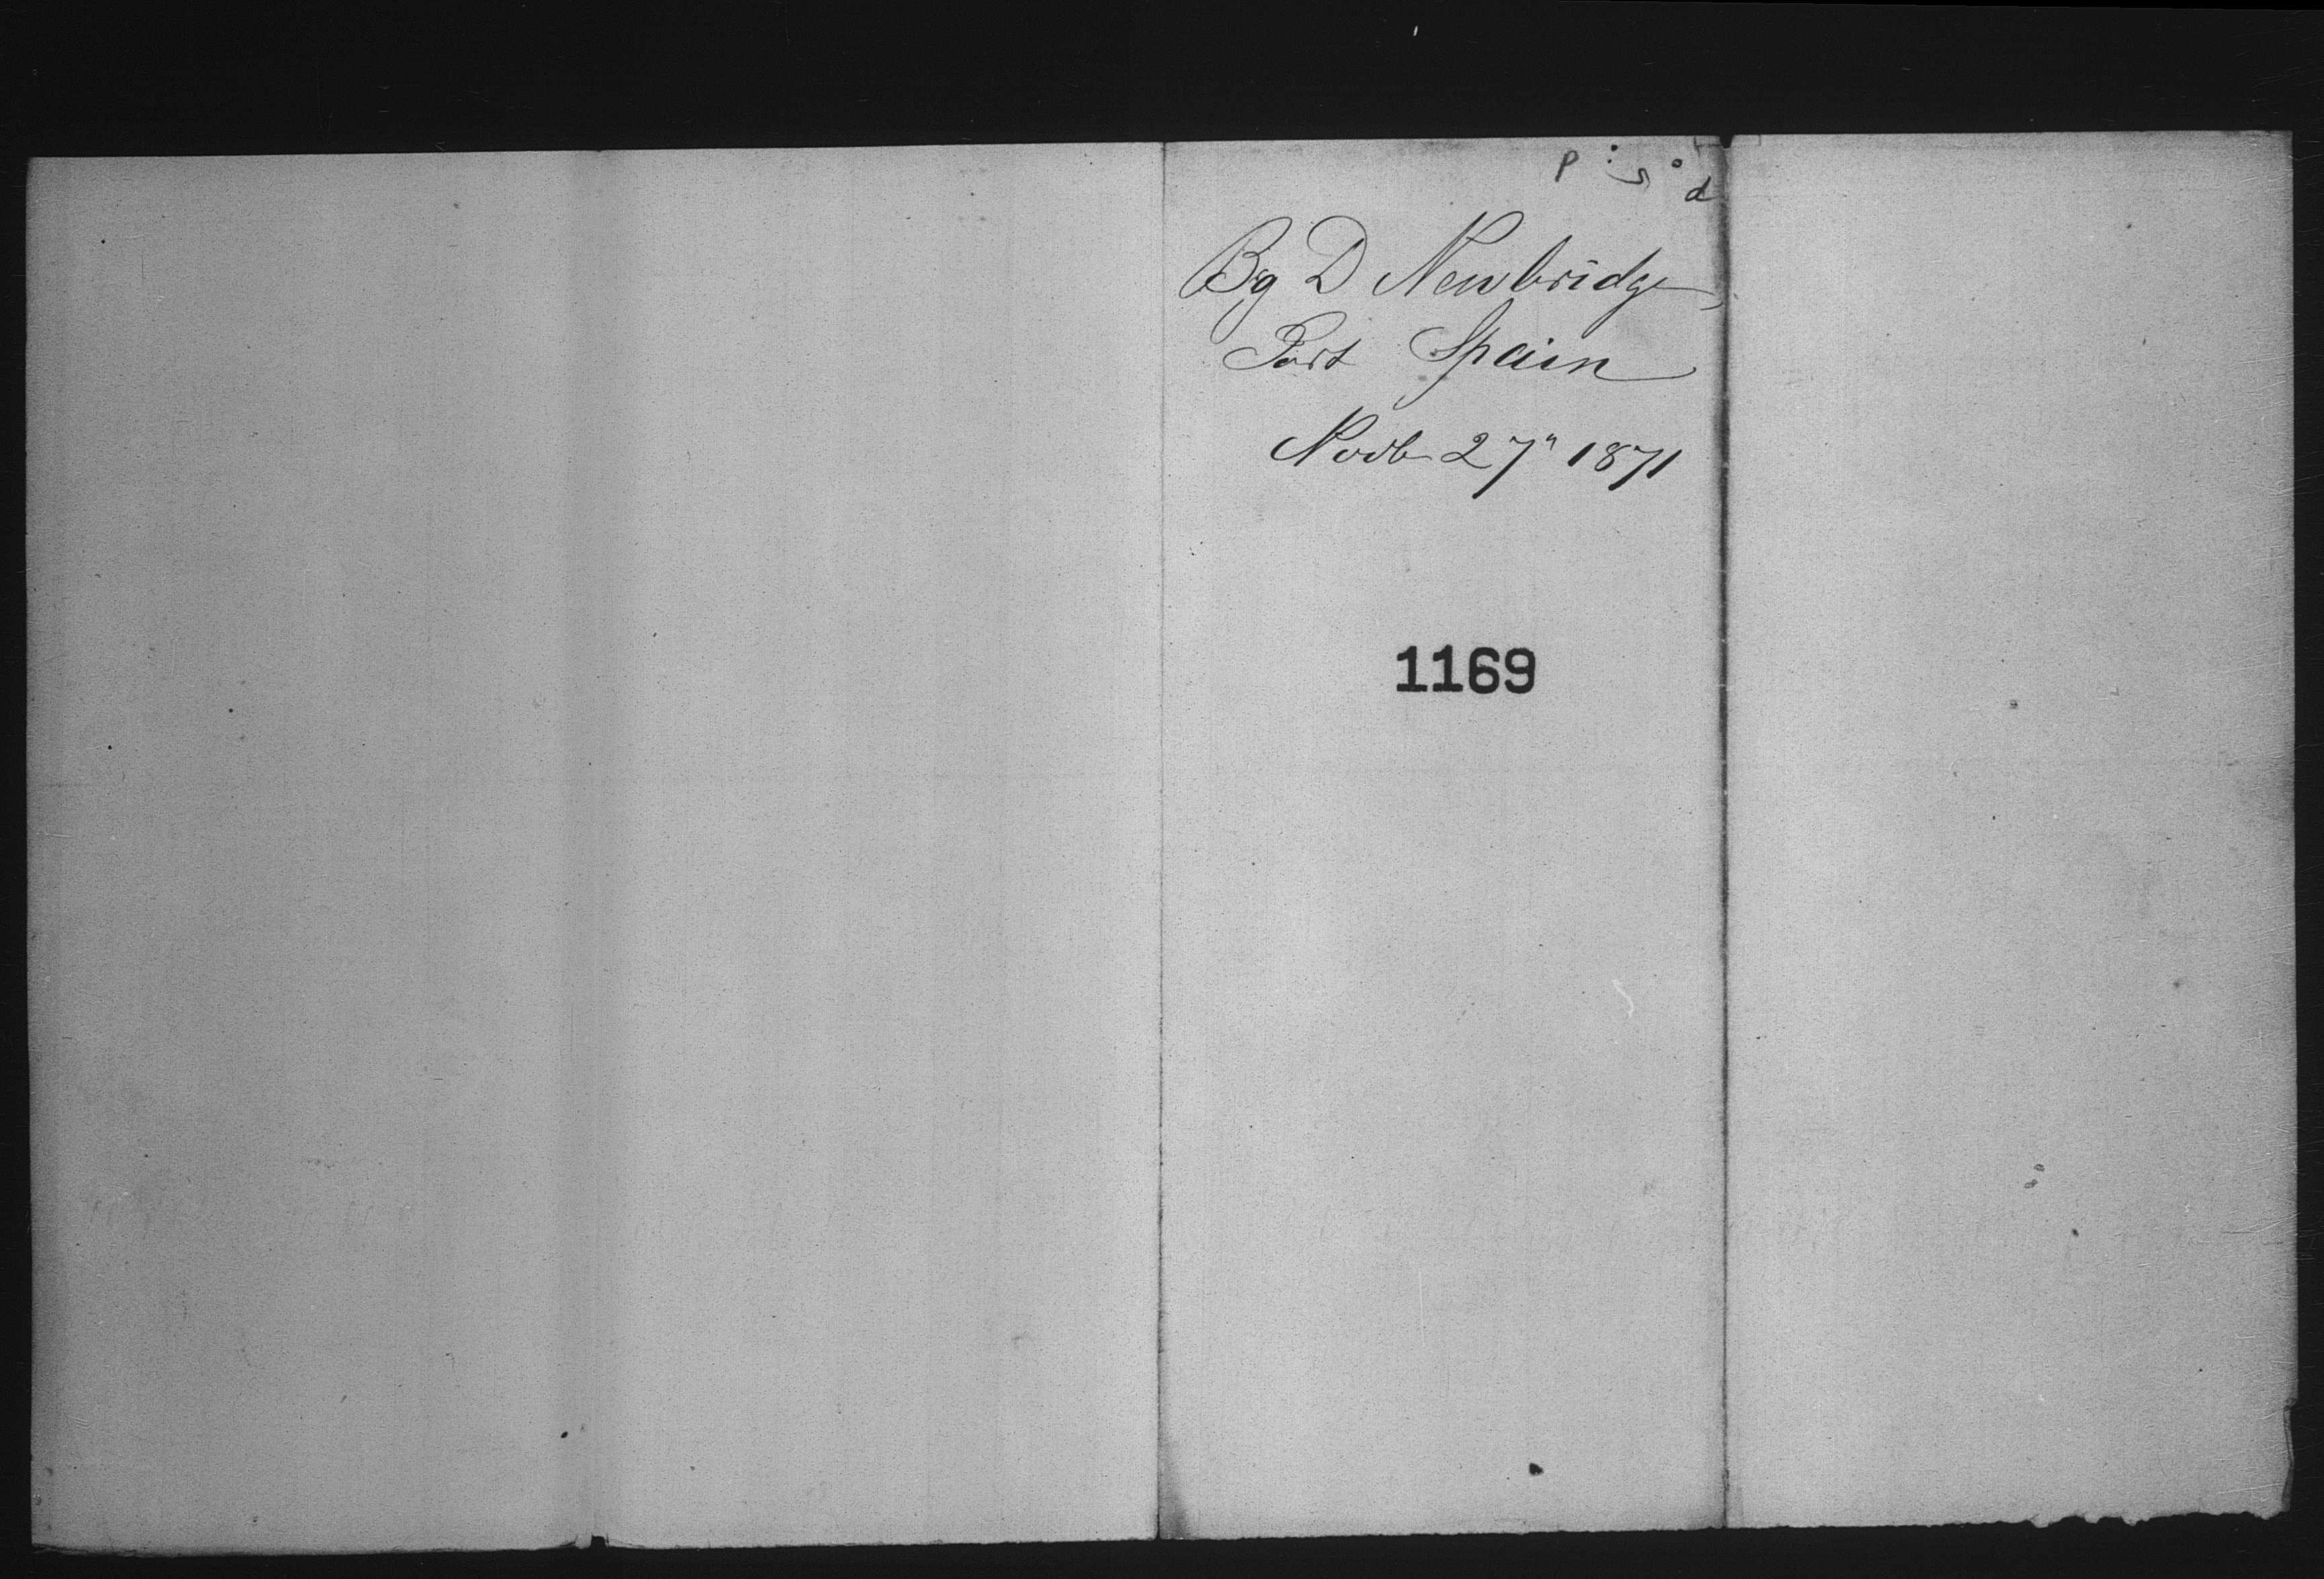 Bg D Newbridge
Port Spain
Novb 27" 1871
1169